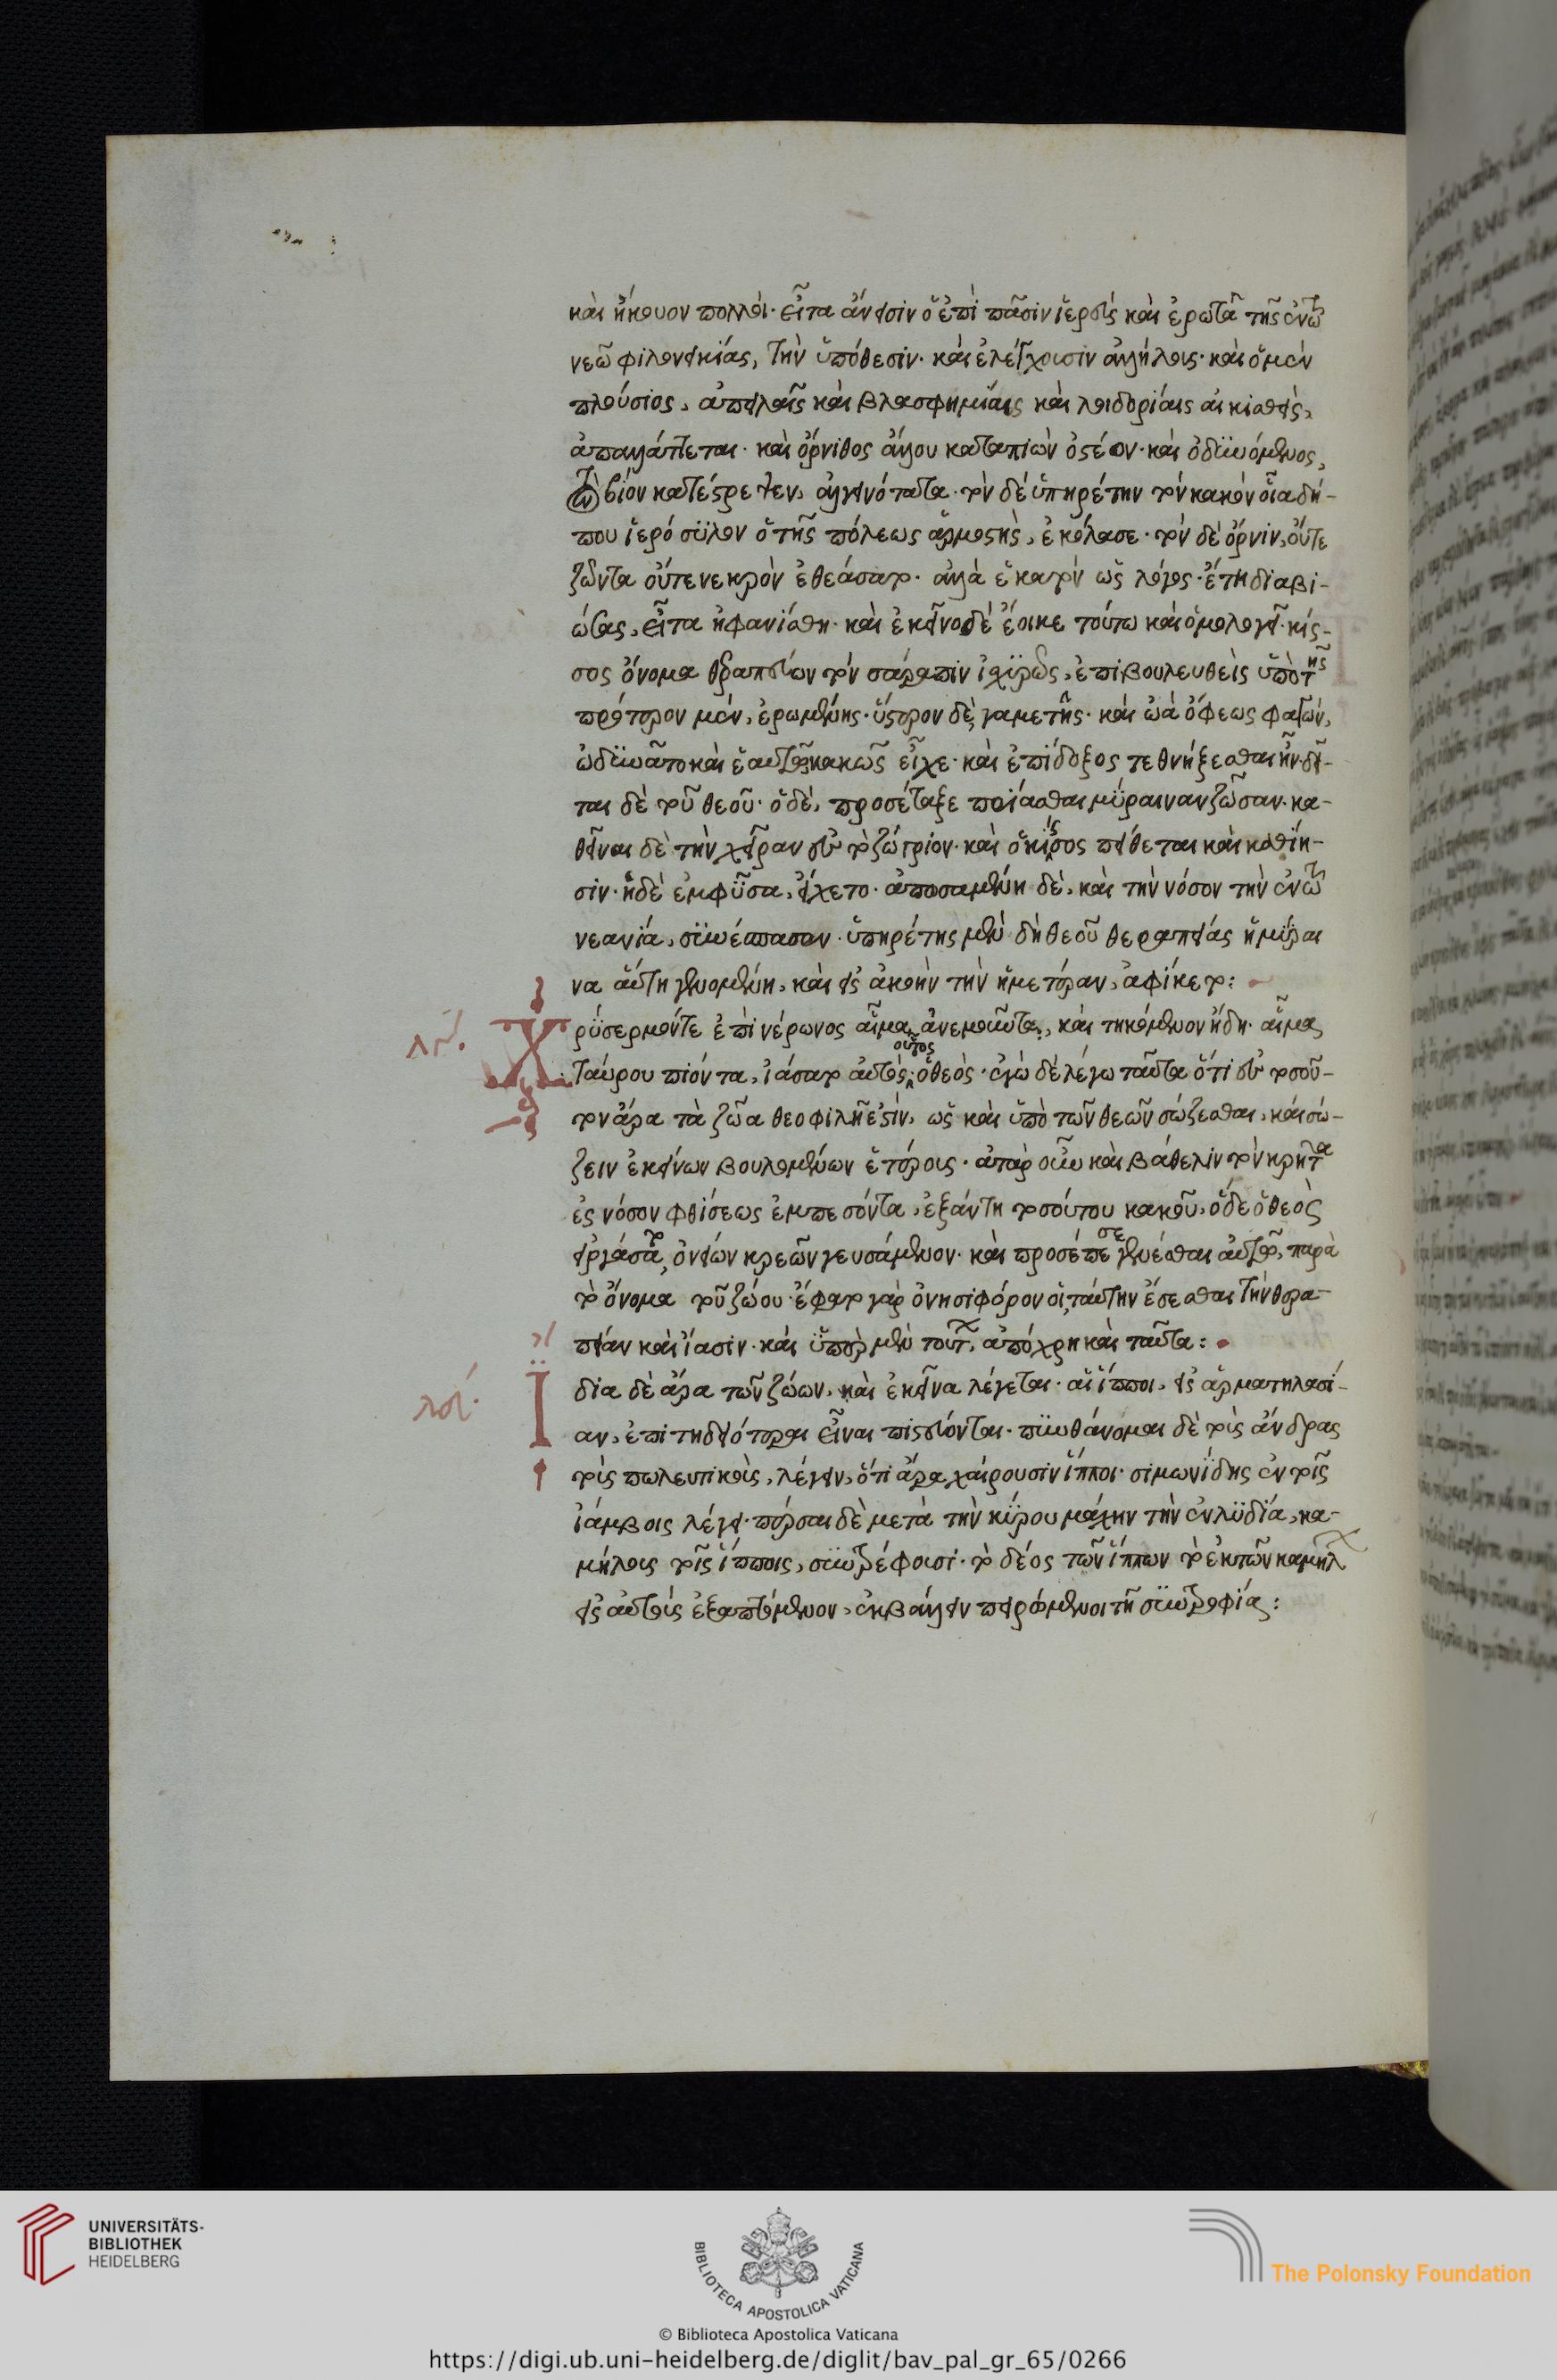 καὶ ἤκουον πολλοί· εἶτα ἄνεισιν ὁ ἐπὶ πᾶσιν ἱερεὺς καὶ ἐρωτᾶ τῆς ἐν τῶ
νεῶ φιλονεικίας, τὴν ὑπόθεσιν· καὶ ἐλέγχουσιν ἀλλήλους· καὶ ὁ μὲν
πλούσιος, ἀπειλαῖς καὶ βλασφημίαις καὶ λοιδορίαις αἰκισθεὶς,
ἀπαλλάττεται· καὶ ὄρνιθος ἄλλου καταπιὼν ὀστέον· καὶ ὀδυνόμενος,
τὸν βίον κατέστρεψεν, ἀλγεινότατα· τὸν δὲ ὑπηρέτην τὸν κακὸν οἷα δή-
που ἱερόσυλον ὁ τῆς πόλεως ἁρμοστὴς, ἐκόλασε· τὸν δὲ ὄρνιν, οὔτε
ζῶντα οὔτε νεκρὸν ἐθεάσατο· ἀλλὰ ἑκατὸν ὡς λόγος· ἔτη διαβι-
ώσας, εἶτα ἠφανίσθη· καὶ ἐκεῖνο δὲ ἔοικε τούτω καὶ ὁμολογεῖ· κίσ-
σος ὄνομα θεραπεύων τὸν σάραπιν ἰσχυρῶς, ἐπιβουλευθεὶς ὑπὸ τῆς
πρότερον μὲν, ἐρωμένης· ὕστερον δὲ, γαμετῆς· καὶ ὠὰ ὄφεως φαγὼν,
ὠδυνᾶτο καὶ ἑαυτοῦ κακῶς εἶχε· καὶ ἐπίδοξος τεθνήξεσθαι ἦν· δεῖ-
ται δὲ τοῦ θεοῦ· ὁ δὲ, προσέταξε πρίασθαι μύραιναν ζῶσαν· κα-
θεῖναι δὲ τὴν χεῖραν ἐς τὸ ζώγριον· καὶ ὁ κίσσος πείθεται καὶ καθίη-
σιν· ἡ δὲ ἐμφῦσα, εἴχετο· ἀποσπαμένη δὲ, καὶ τὴν νόσον τὴν ἐν τῶ
νεανία, συνέσπασεν· ὑπηρέτης μὲν δὴ θεοῦ θεραπείας ἡ μύραι
να αὕτη γενομένη, καὶ εἰς ἀκοὴν τὴν ἡμετέραν, ἀφίκετο:
λδ΄. Χρύσερμόν τε ἐπὶ νέρωνος αἷμα, ἀνεμοῦντα, καὶ τηκόμενον ἤδη· αἷμα
ταύρου πιόντα, ἰάσατο αὐτὸς οὗτος ὁ θεὸς· ἐγὼ δὲ λέγω ταῦτα ὅτι ἐς τοσοῦ-
τον ἄρα τὰ ζῶα θεοφιλῆ ἐστὶν, ὡς καὶ ὑπὸ τῶν θεῶν σώζεσθαι, καὶ σώ-
ζειν ἐκείνων βουλομένων ἑτέρους· ἀτὰρ οὖν καὶ βάθελιν τὸν κρῆτα
ἐς νόσον φθίσεως ἐμπεσόντα, ἐξάντη τοσούτου κακοῦ, ὅδε ὁ θεὸς
εἰργάσατο, ὀνείων κρεῶν γευσάμενον· καὶ προσέπεσε γενέσθαι αὐτῶ, παρὰ
τὸ ὄνομα τοῦ ζώου· ἔφατο γὰρ ὀνησιφόρον οἱ ταύτην ἔσεσθαι τὴν θερα-
πείαν καὶ ἴασιν· καὶ ὑπὲρ μὲν τούτων, ἀπόχρη καὶ ταῦτα:
λε΄. Ἴδια δὲ ἄρα τῶν ζώων, καὶ ἐκεῖνα λέγεται· αἱ ἵπποι, εἰς ἁρματηλασί-
αν, ἐπιτηδειότεραι εἶναι πιστεύονται· πυνθάνομαι δὲ τοὺς ἄνδρας
τοὺς πωλευτικοὺς, λέγειν, ὅτι ἄρα χαίρουσιν ἵπποι· σιμωνίδης ἐν τοῖς
ἰάμβοις λέγει· πέρσαι δὲ μετὰ τὴν κύρου μάχην τὴν ἐν λυδία, κα-
μήλους τοῖς ἵπποις, συντρέφουσι· τὸ δέος τῶν ἵππων τὸ ἐκ τῶν καμήλων
εἰς αὐτοὺς ἐξαπτόμενον, ἐκβάλλειν πειρώμενοι τῆ συντροφία:
UNIVERSITÄTS-
BIBLIOTHEK
HEIDELBERG
BIBLIOTECA APOSTOLICA VATICANA
The Polonsky Foundation
© Biblioteca Apostolica Vaticana
https://digi.ub.uni-heidelberg.de/diglit/bav_pal_gr_65/0266